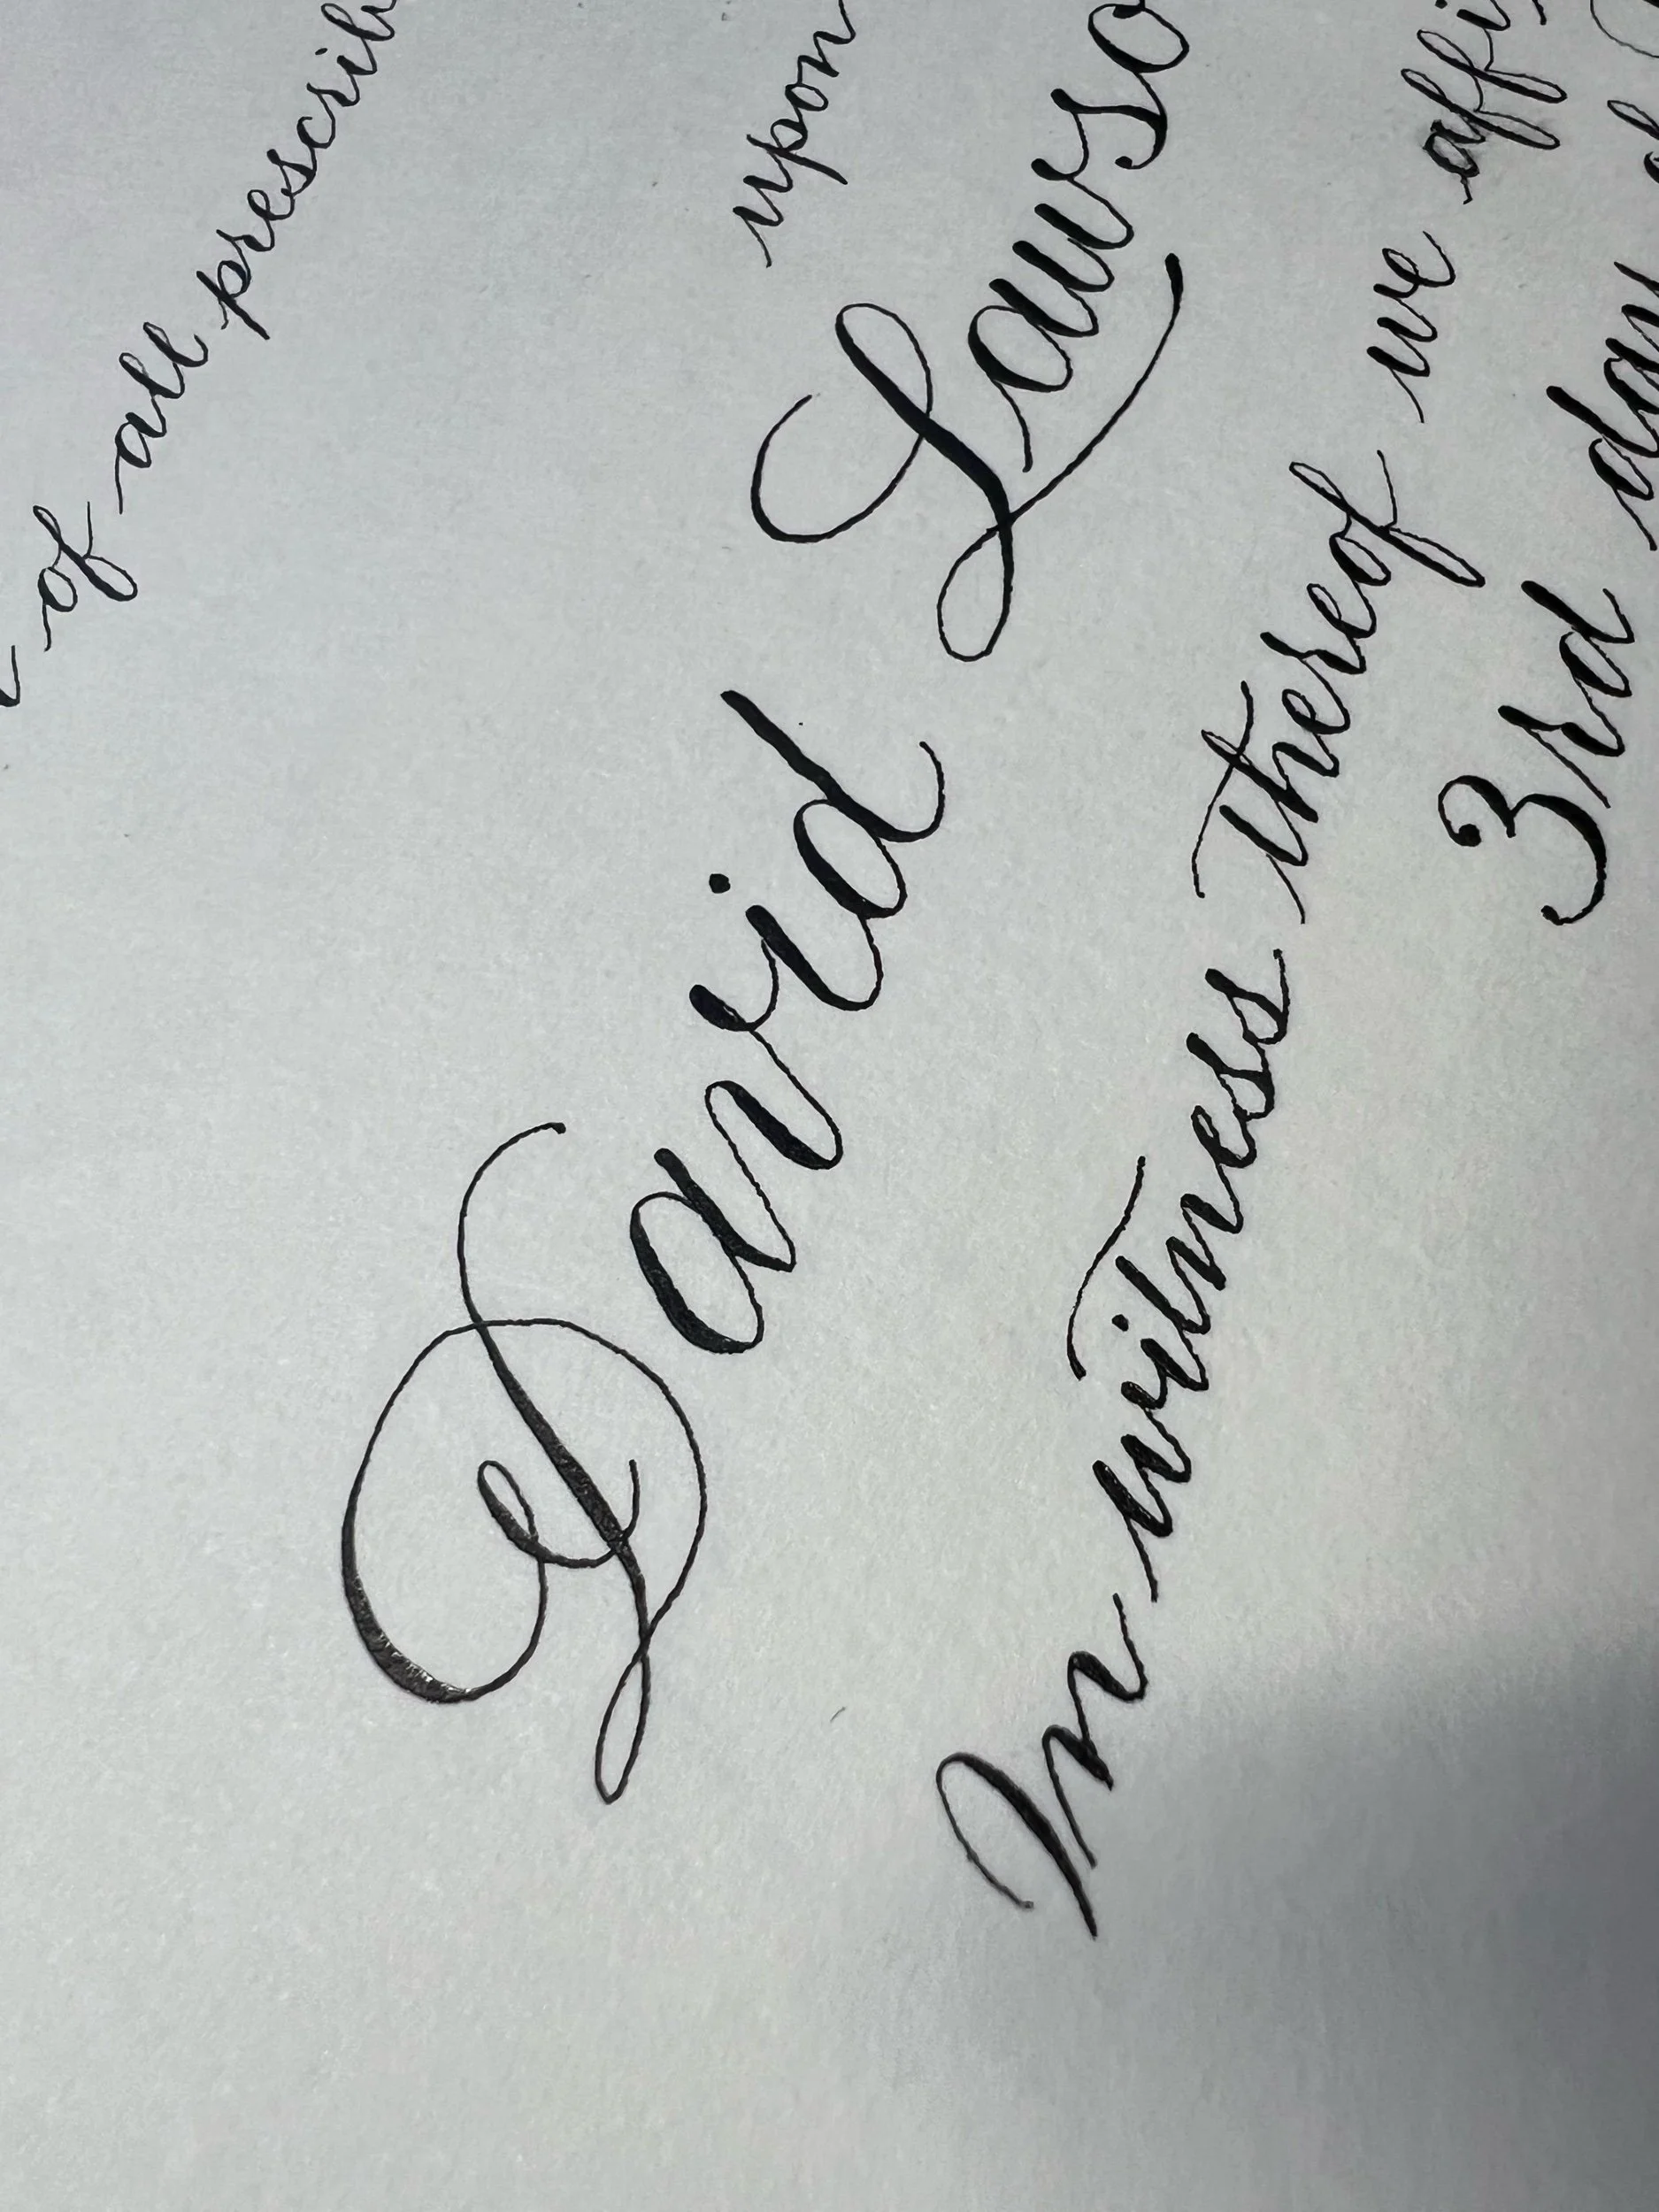 of all prescrib
upon
David Lawso
In witness thereof we affi
3rd day of